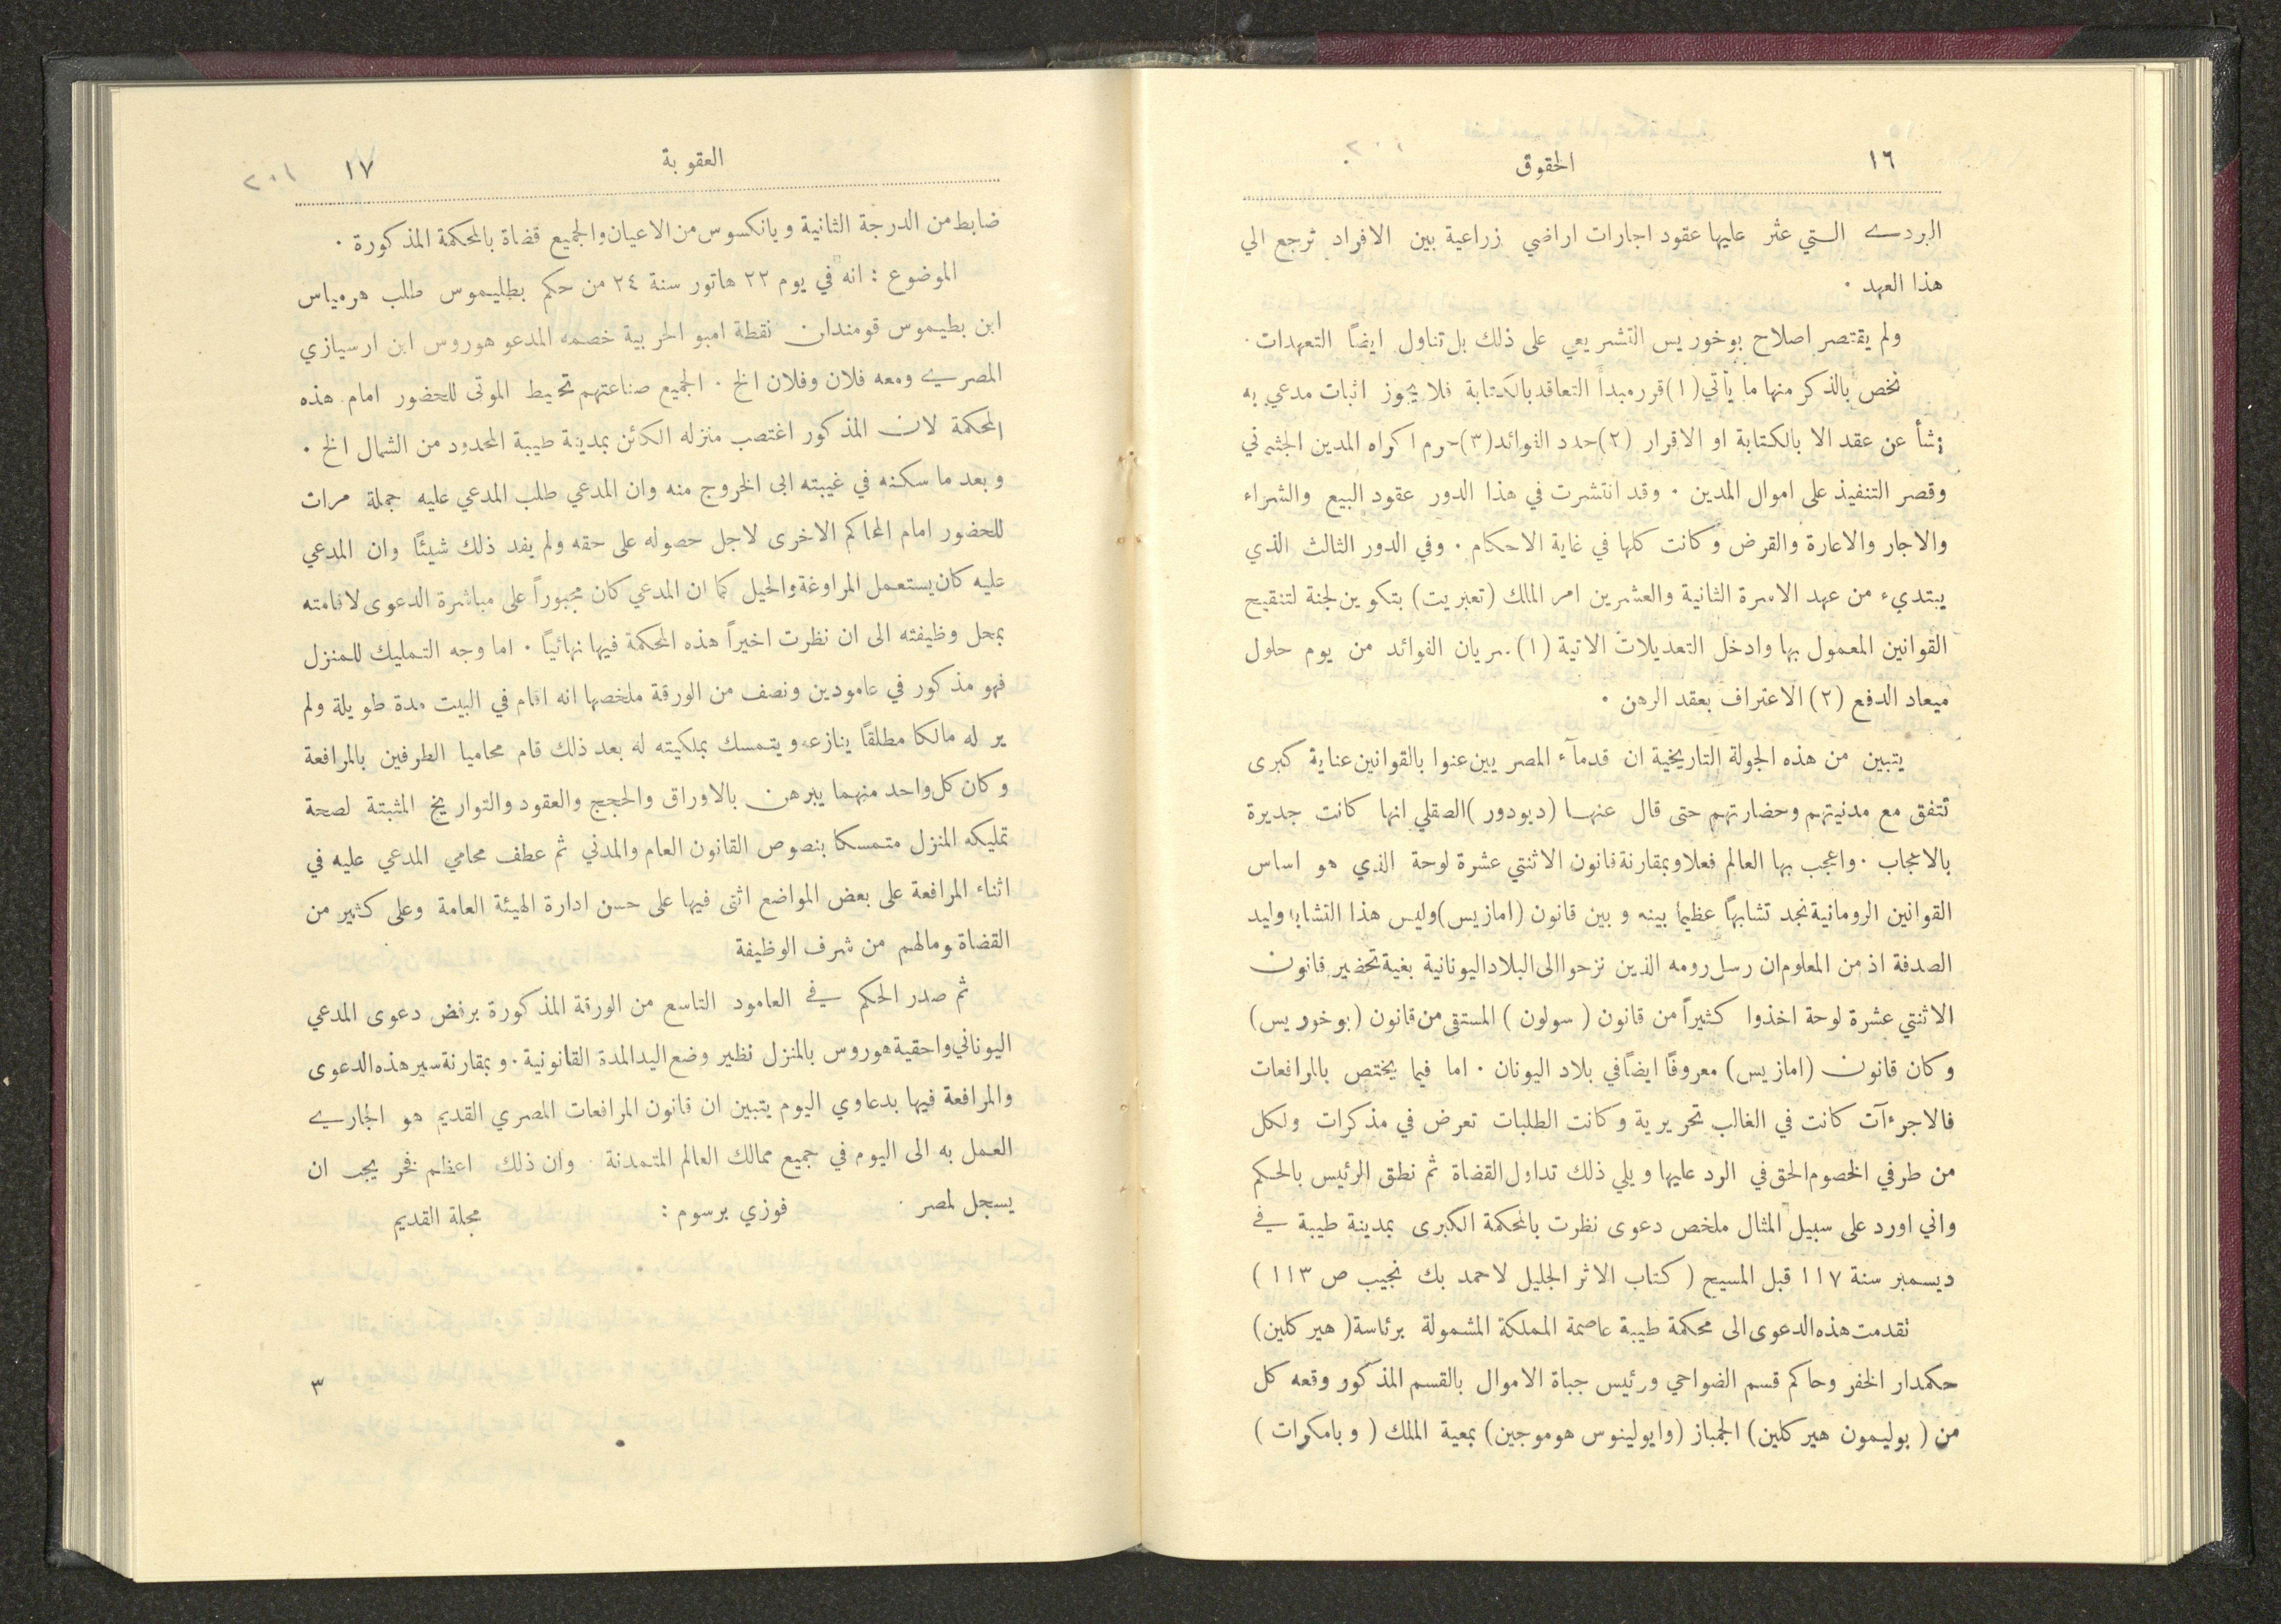 ١٦
الحقوق
البردي التي عثر عليها عقود اجارات اراضي زراعية بين الافراد ترجع الي
هذا العهد ٠
ولم يقتصر اصلاح بوخوريس التشريعي على ذلك بل تناول ايضاً التعهدات ٠
نخص بالذكر منها ما يأتي (١) قرر مبدأ التعاقد بالكتابة فلا يجوز اثبات مدعي به
نشأ عن عقد الا بالكتابة او الاقرار (٢) حدد الفوائد (٣) حرم اكراه المدين الجثماني
وقصر التنفيذ على اموال المدين ٠ وقد انتشرت في هذا الدور عقود البيع والشراء
والاجار والاعارة والقرض وكانت كلها في غاية الاحكام ٠ وفي الدور الثالث الذي
يبتديء من عهد الاسرة الثانية والعشرين امر الملك (تعبريت) بتكوين لجنة لتنقيح
القوانين المعمول بها وادخل التعديلات الاتية (١) سريان الفوائد من يوم حلول
ميعاد الدفع (٢) الاعتراف بعقد الرهن ٠
يتبين من هذه الجولة التاريخية ان قدمآء المصريين عنوا بالقوانين عناية كبرى
تتفق مع مدنيتهم وحضارتهم حتى قال عنها (ديودور) الصقلي انها كانت جديرة
بالاعجاب ٠ واعجب بها العالم فعلا وبمقارنة قانون الاثنتي عشرة لوحة الذي هو اساس
القوانين الرومانية نجد تشابهاً عظيما بينه وبين قانون (امازيس) وليس هذا التشابه وليد
الصدفة اذ من المعلوم ان رسل رومه الذين نزحوا الى البلاد اليونانية بغية تحضير قانون
الاثنتي عشرة لوحة اخذوا كثيراً من قانون (سولون) المستقى من قانون (بوخوريس)
وكان قانون (امازيس) معروفًا ايضاً في بلاد اليونان ٠ اما فيما يختص بالمرافعات
فالاجرءآت كانت في الغالب تحريرية وكانت الطلبات تعرض في مذكرات ولكل
من طرفي الخصوم الحق في الرد عليها ويلي ذلك تداول القضاة ثم نطق الرئيس بالحكم
واني اورد على سبيل المثال ملخص دعوى نظرت بالمحكمة الكبرى بمدينة طيبة في
ديسمبر سنة ١١٧ قبل المسيح (كتاب الاثر الجليل لاحمد بك نجيب ص ١١٣)
تقدمت هذه الدعوى الى محكمة طيبة عاصمة المملكة المشمولة برئاسة (هيركلين)
حكمدار الخفر وحاكم قسم الضواحي ورئيس جباة الاموال بالقسم المذكور وقعه كل
من (بوليمون هيركلين) الجمباز (وايولينوس هوموجين) بمعية الملك (وبامكرات)
العقوبة
١٧
٢٠١
ضابط من الدرجة الثانية ويانكسوس من الاعيان والجميع قضاة بالمحكمة المذكورة ٠
الموضوع : انه في يوم ٢٢ هاتور سنة ٢٤ من حكم بطليموس طلب هرمياس
ابن بطيموس قومندان نقطة امبو الحربية خصمه المدعو هوروس ابن ارسيازي
المصري ومعه فلان وفلان الخ ٠ الجميع صناعتهم تحيط الموتى للحضور امام هذه
المحكمة لان المذكور اغتصب منزله الكائن بمدينة طيبة المحدود من الشمال الخ ٠
وبعد ما سكنه في غيبته ابى الخروج منه وان المدعي طلب المدعي عليه جملة مرات
للحضور امام المحاكم الاخرى لاجل حصوله على حقه ولم يفد ذلك شيئًا وان المدعي
عليه كان يستعمل المراوغة والحيل كما ان المدعي كان مجبوراً على مباشرة الدعوى لاقامته
بمحل وظيفته الى ان نظرت اخيراً هذه المحكمة فيها نهائياً ٠ اما وجه التمليك للمنزل
فهو مذكور في عامودين ونصف من الورقة ملخصها انه اقام في البيت مدة طويلة ولم
ير له مالكا مطلقاً ينازعه ويتمسك بملكيته له بعد ذلك قام محاميا الطرفين بالمرافعة
وكان كل واحد منهما يبرهن بالاوراق والحجج والعقود والتواريخ المثبتة لصحة
تمليكه المنزل متمسكا بنصوص القانون العام والمدني ثم عطف محامي المدعي عليه في
اثناء المرافعة على بعض المواضع اثنى فيها على حسن ادارة الهيئة العامة وعلى كثير من
القضاة ومالهم من شرف الوظيفة
ثم صدر الحكم في العامود التاسع من الورقة المذكورة برفض دعوى المدعي
اليوناني واحقية هوروس بالمنزل نظير وضع اليد المدة القانونية ٠ وبمقارنة سير هذه الدعوى
والمرافعة فيها بدعاوي اليوم يتبين ان قانون المرافعات المصري القديم هو الجاري
العمل به الى اليوم في جميع ممالك العالم المتمدنة ٠ وان ذلك اعظم فخر يجب ان
يسجل لمصر ٠ فوزي برسوم : مجلة القديم
٣